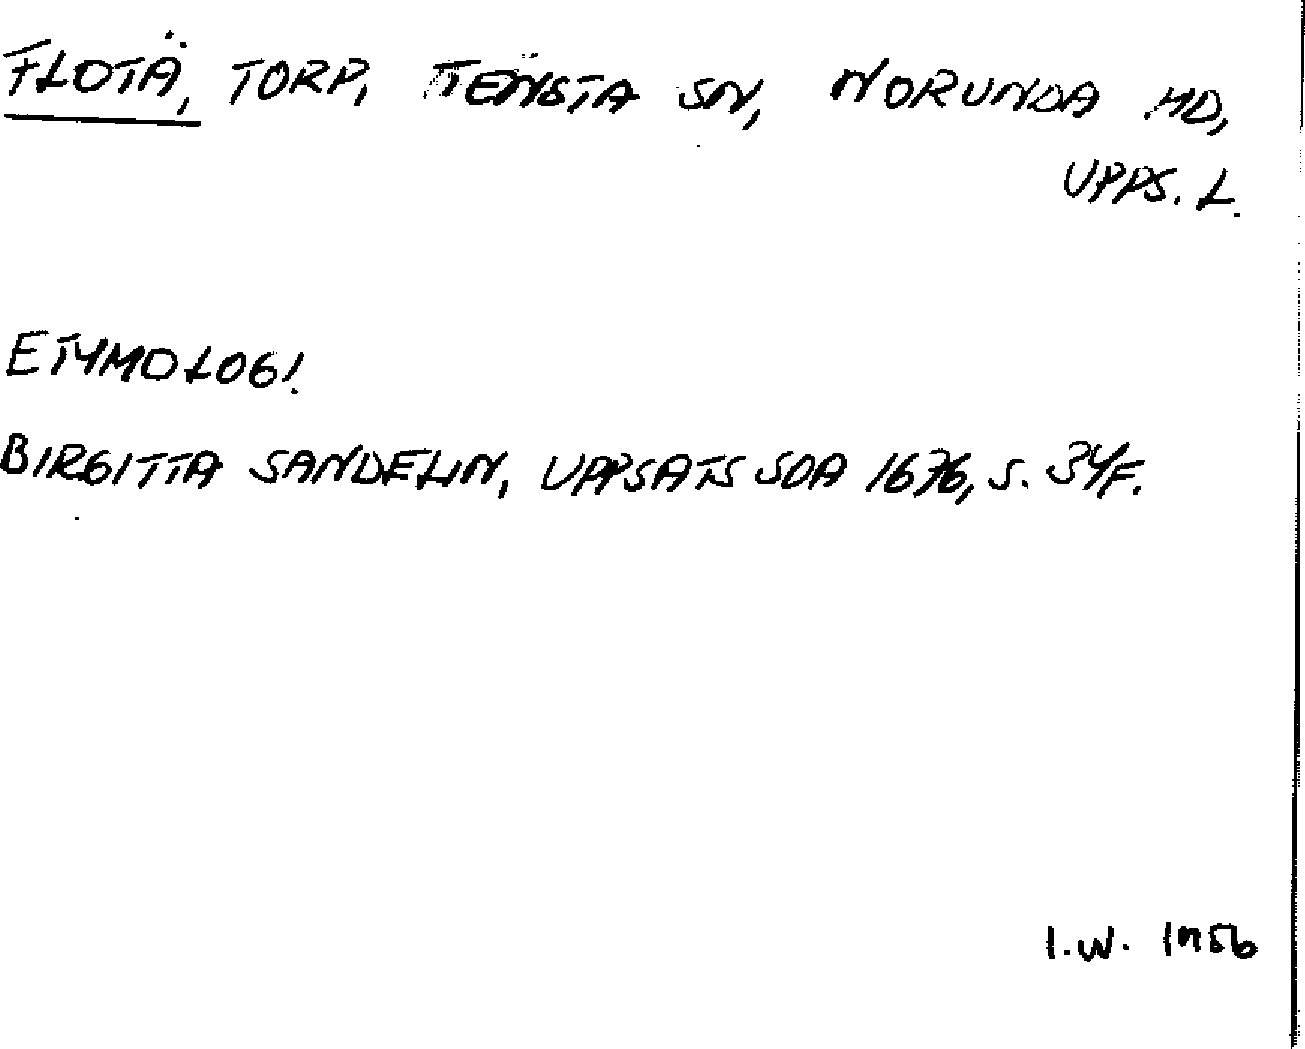 FLOTÄ, TORP, TENSTA SN, NORUNDA HD,
UPPS. L.
ETYMOLOGI.
BIRGITTA SANDELIN, UPPSATS SOA 1676, S. 34F.
I.W.